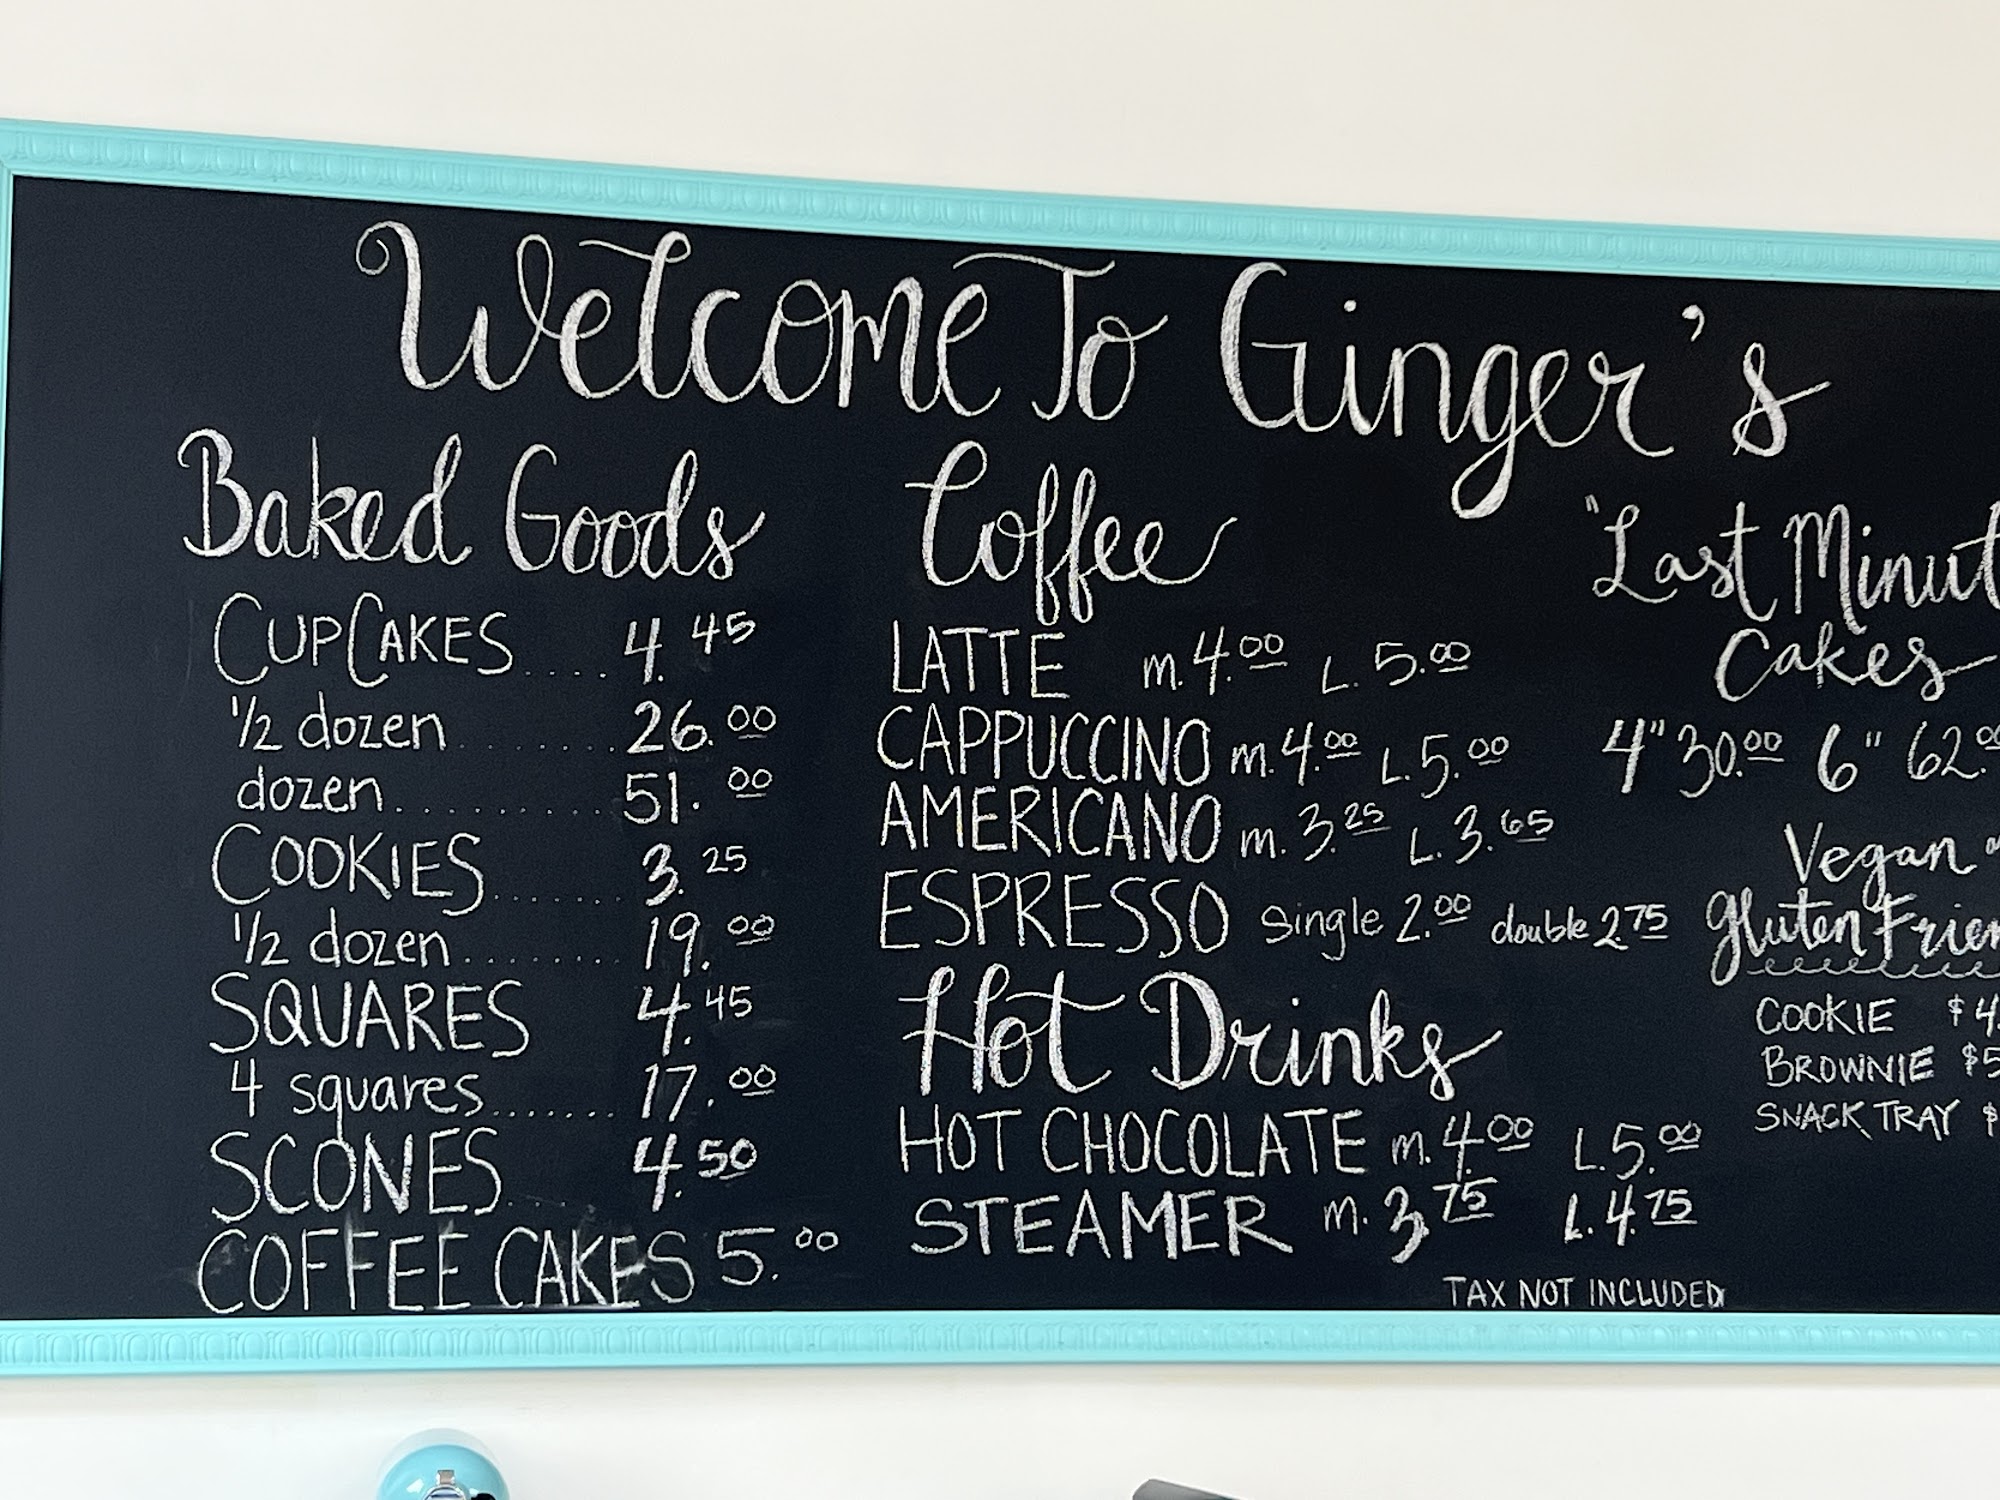 Welcome To Ginger's
Baked Goods
CUPCAKES.... 4.45
1/2 dozen........ 26.00
dozen.......... 51.00
COOKIES....... 3.25
1/2 dozen........ 19.00
SQUARES 4.45
4 squares....... 17.00
SCONES... 4.50
COFFEE CAKES 5.00
Coffee
LATTE m. 4.00 L. 5.00
CAPPUCCINO m. 4.00 L. 5.00
AMERICANO m. 3.25 L. 3.65
ESPRESSO single 2.00 double 2.75
Hot Drinks
HOT CHOCOLATE m. 4.00 L. 5.00
STEAMER m. 3.75 L. 4.75
TAX NOT INCLUDED
"Last Minut
Cakes
4" 30.00 6" 62.00
Vegan
Gluten Frien
COOKIE $4.
BROWNIE $5
SNACK TRAY $